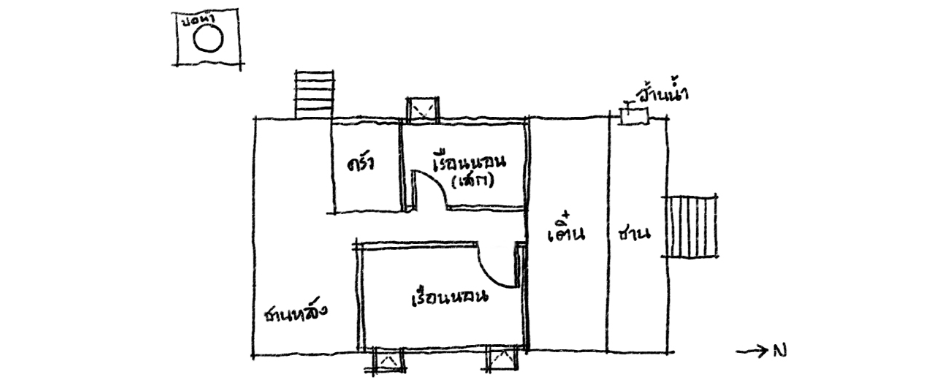 บ่อน้ำ
ฮ้านน้ำ
ครัว
เรือนนอน
(เล็ก)
เติ๋น
ชาน
เรือนนอน
ชานหลัง
N